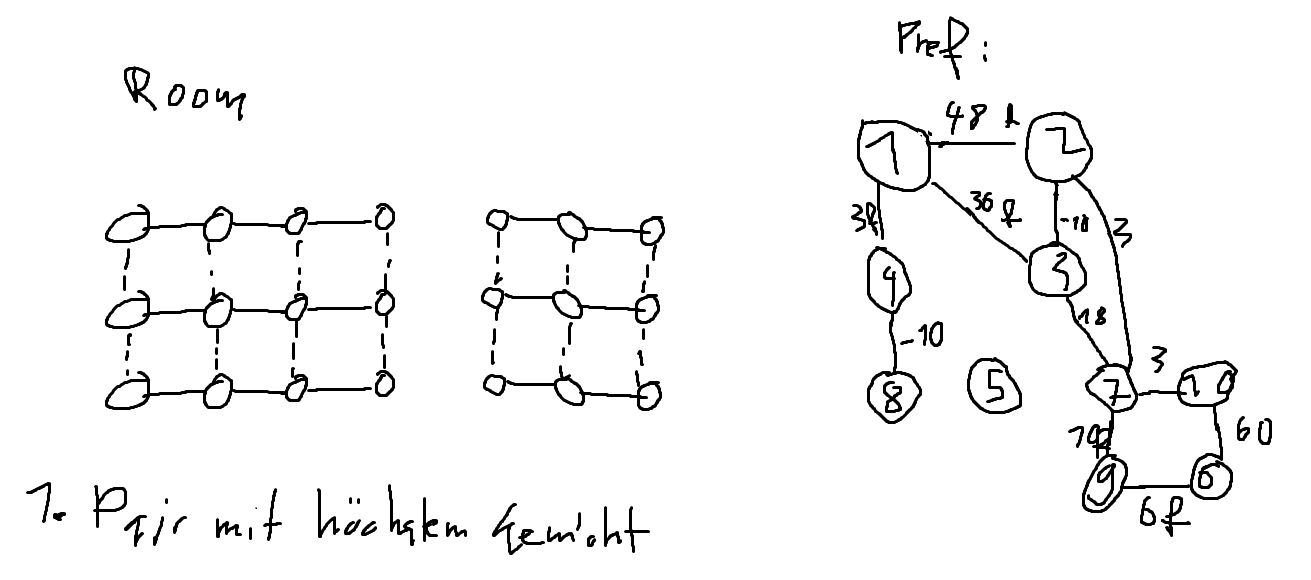 Room
Pref:
48 f
1
2
3f
36 f
-18
3
4
3
18
-10
3
8
5
7
10
60
9
6
6f
1. Pair mit höchstem Gewicht